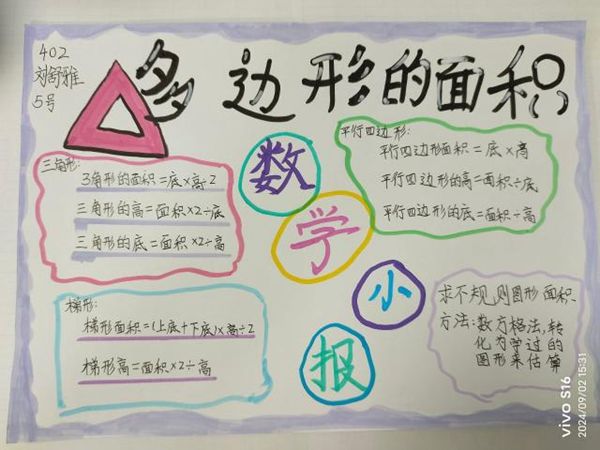 402
刘舒雅
5号
多边形的面积
数学小报
三角形:
3角形的面积=底×高÷2
三角形的高=面积×2÷底
三角形的底=面积×2÷高
平行四边形:
平行四边形面积=底×高
平行四边形的高=面积÷底
平行四边形的底=面积÷高
梯形:
梯形面积=(上底+下底)×高÷2
梯形高=面积×2÷高
求不规则图形面积
方法:数方格法,转
化为学过的
图形来估算
vivo S16
2024/09/02 15:31